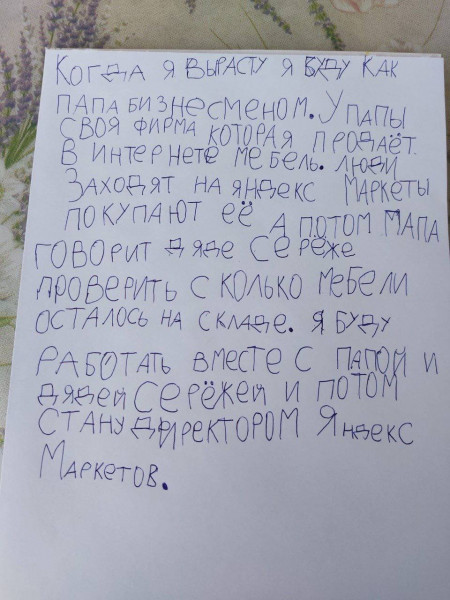 Когда я вырасту я буду как
папа бизнесменом. У папы
своя фирма которая продаёт
в интернете мебель. люди
заходят на яндекс маркеты
покупают её а потом мапа
говорит дяде Серёже
проверить с колько мебели
осталось на складе. я буду
работать вместе с папой и
дядей Серёжей и потом
стану директором Яндекс
Маркетов.